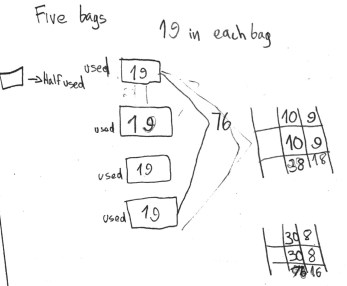 Five bags
19 in each bag
used 19
→Half used
used 19
76
10 9
10 9
38 18
used 19
used 19
30 8
30 8
76 16